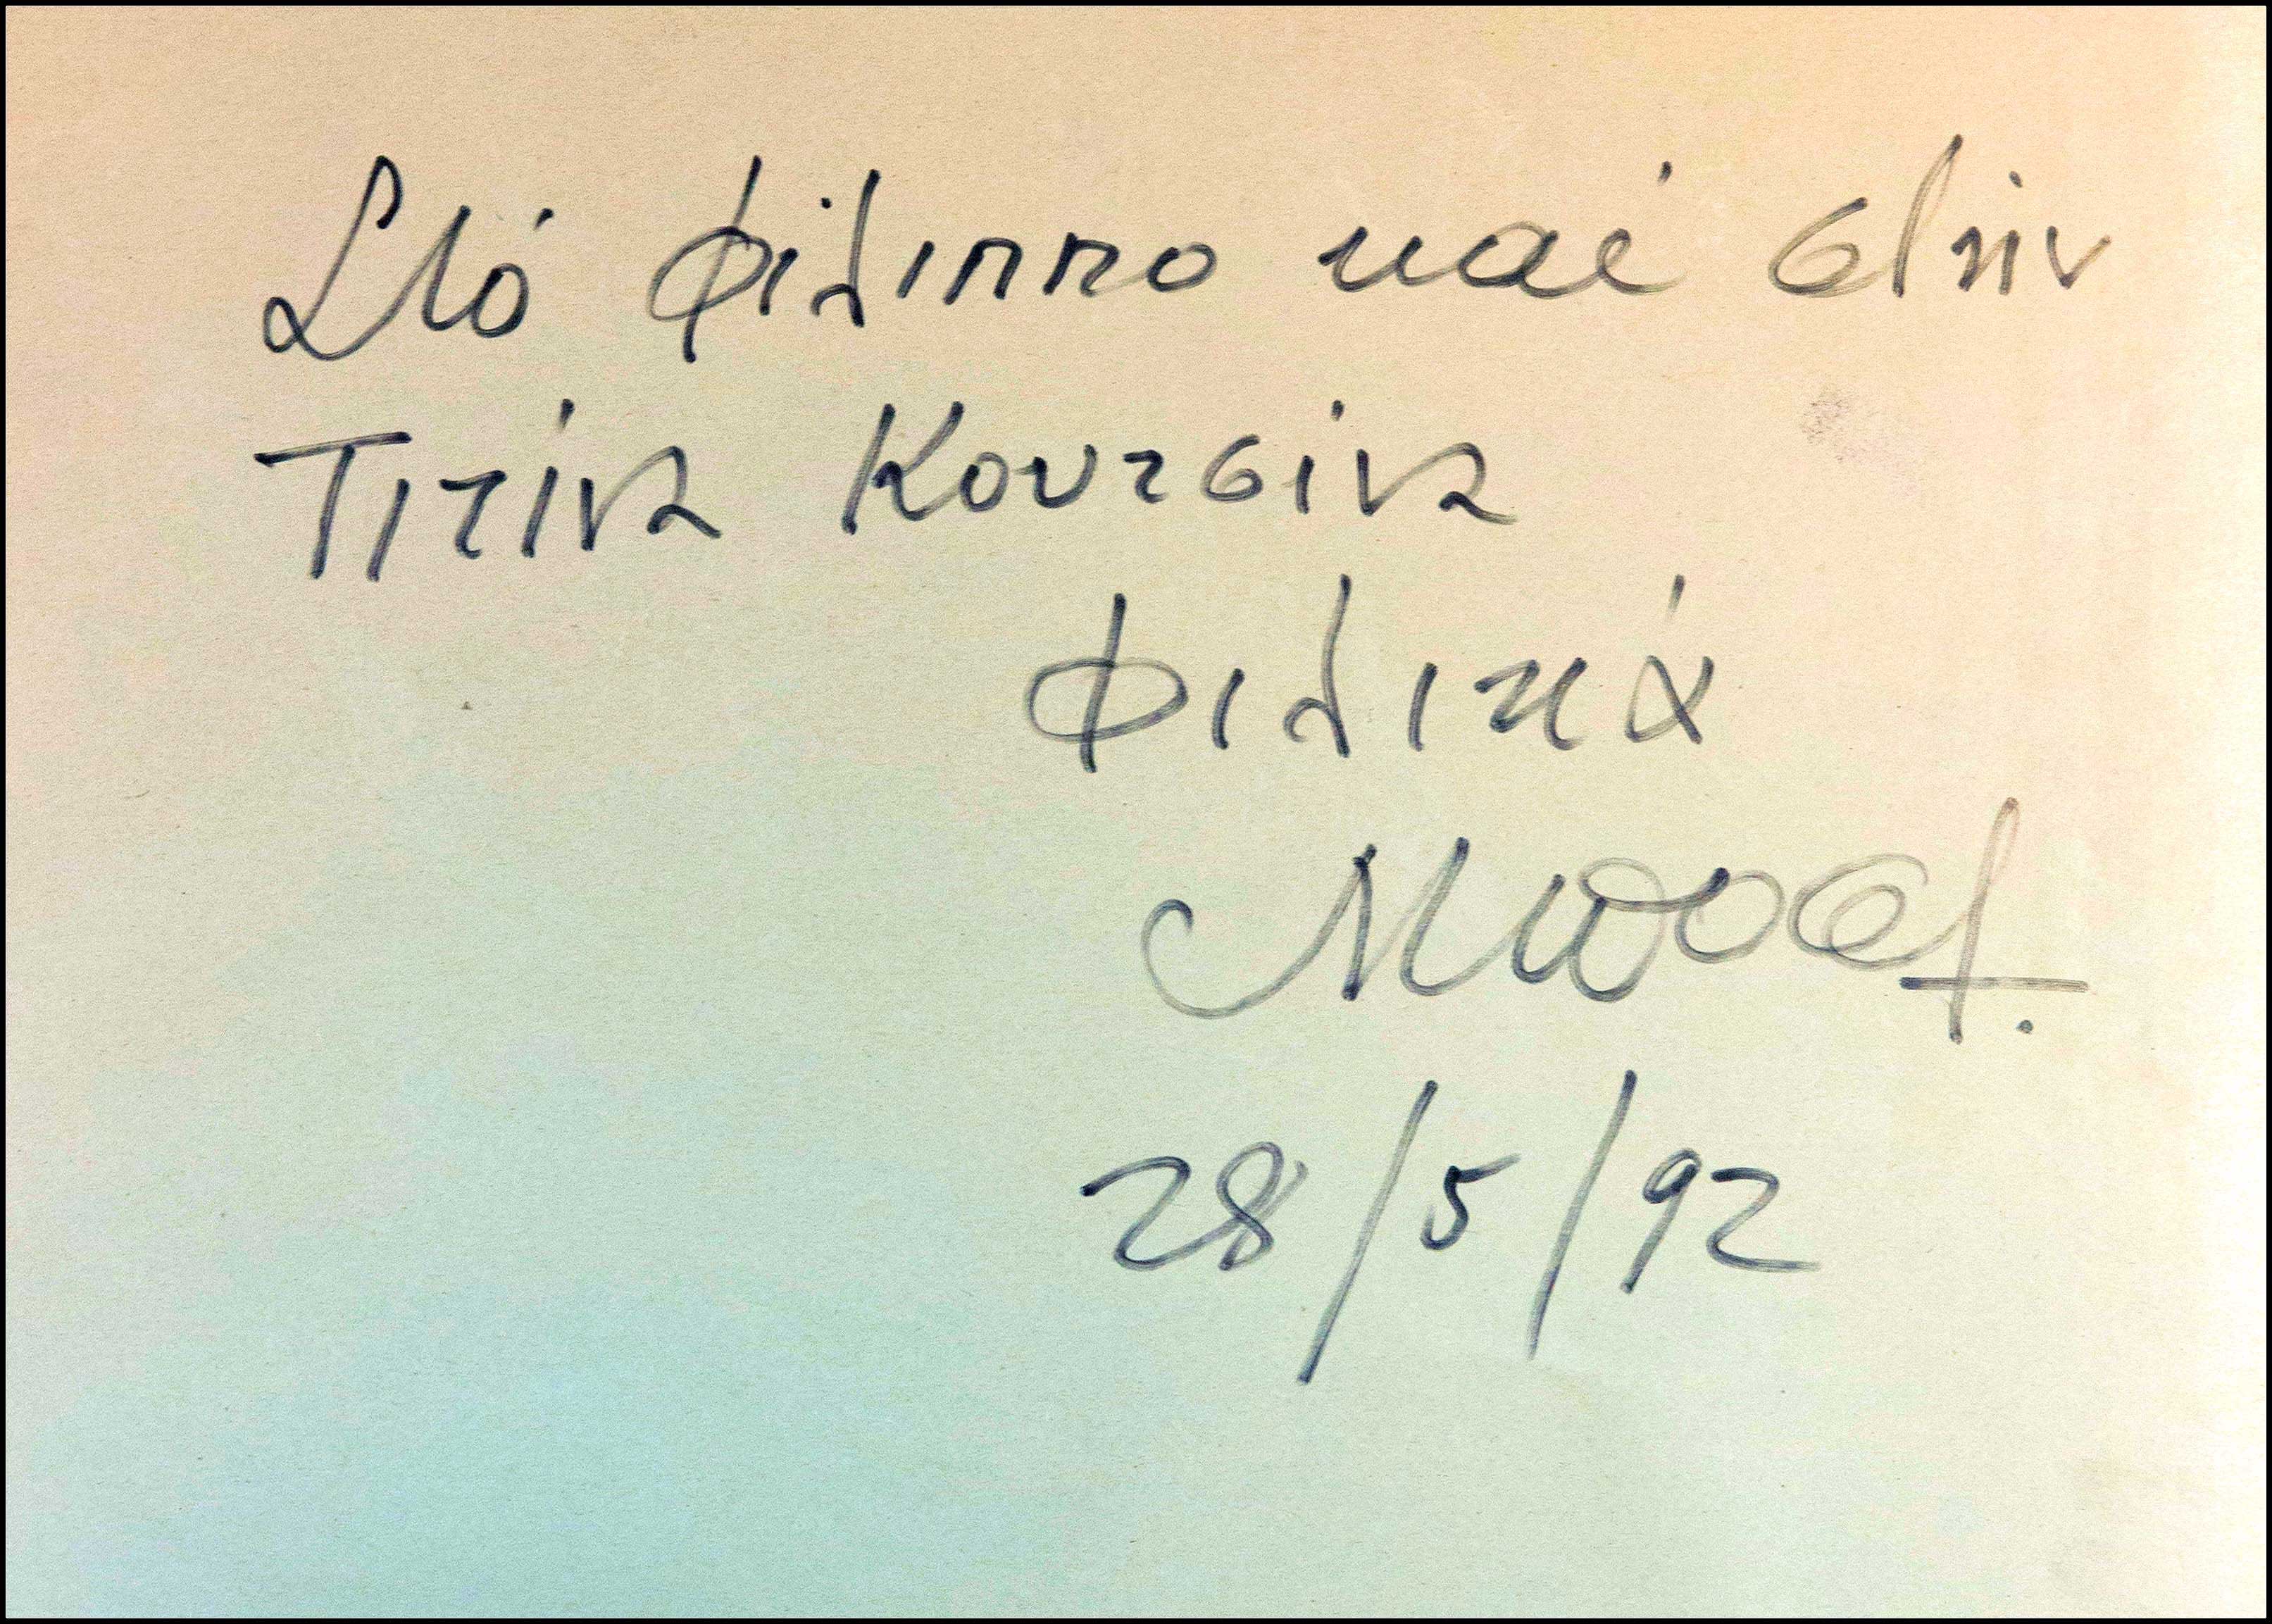 Στό Φίλιππο καί στήν
Τιτίνα Κουτσίνα
Φιλικά
28/5/92